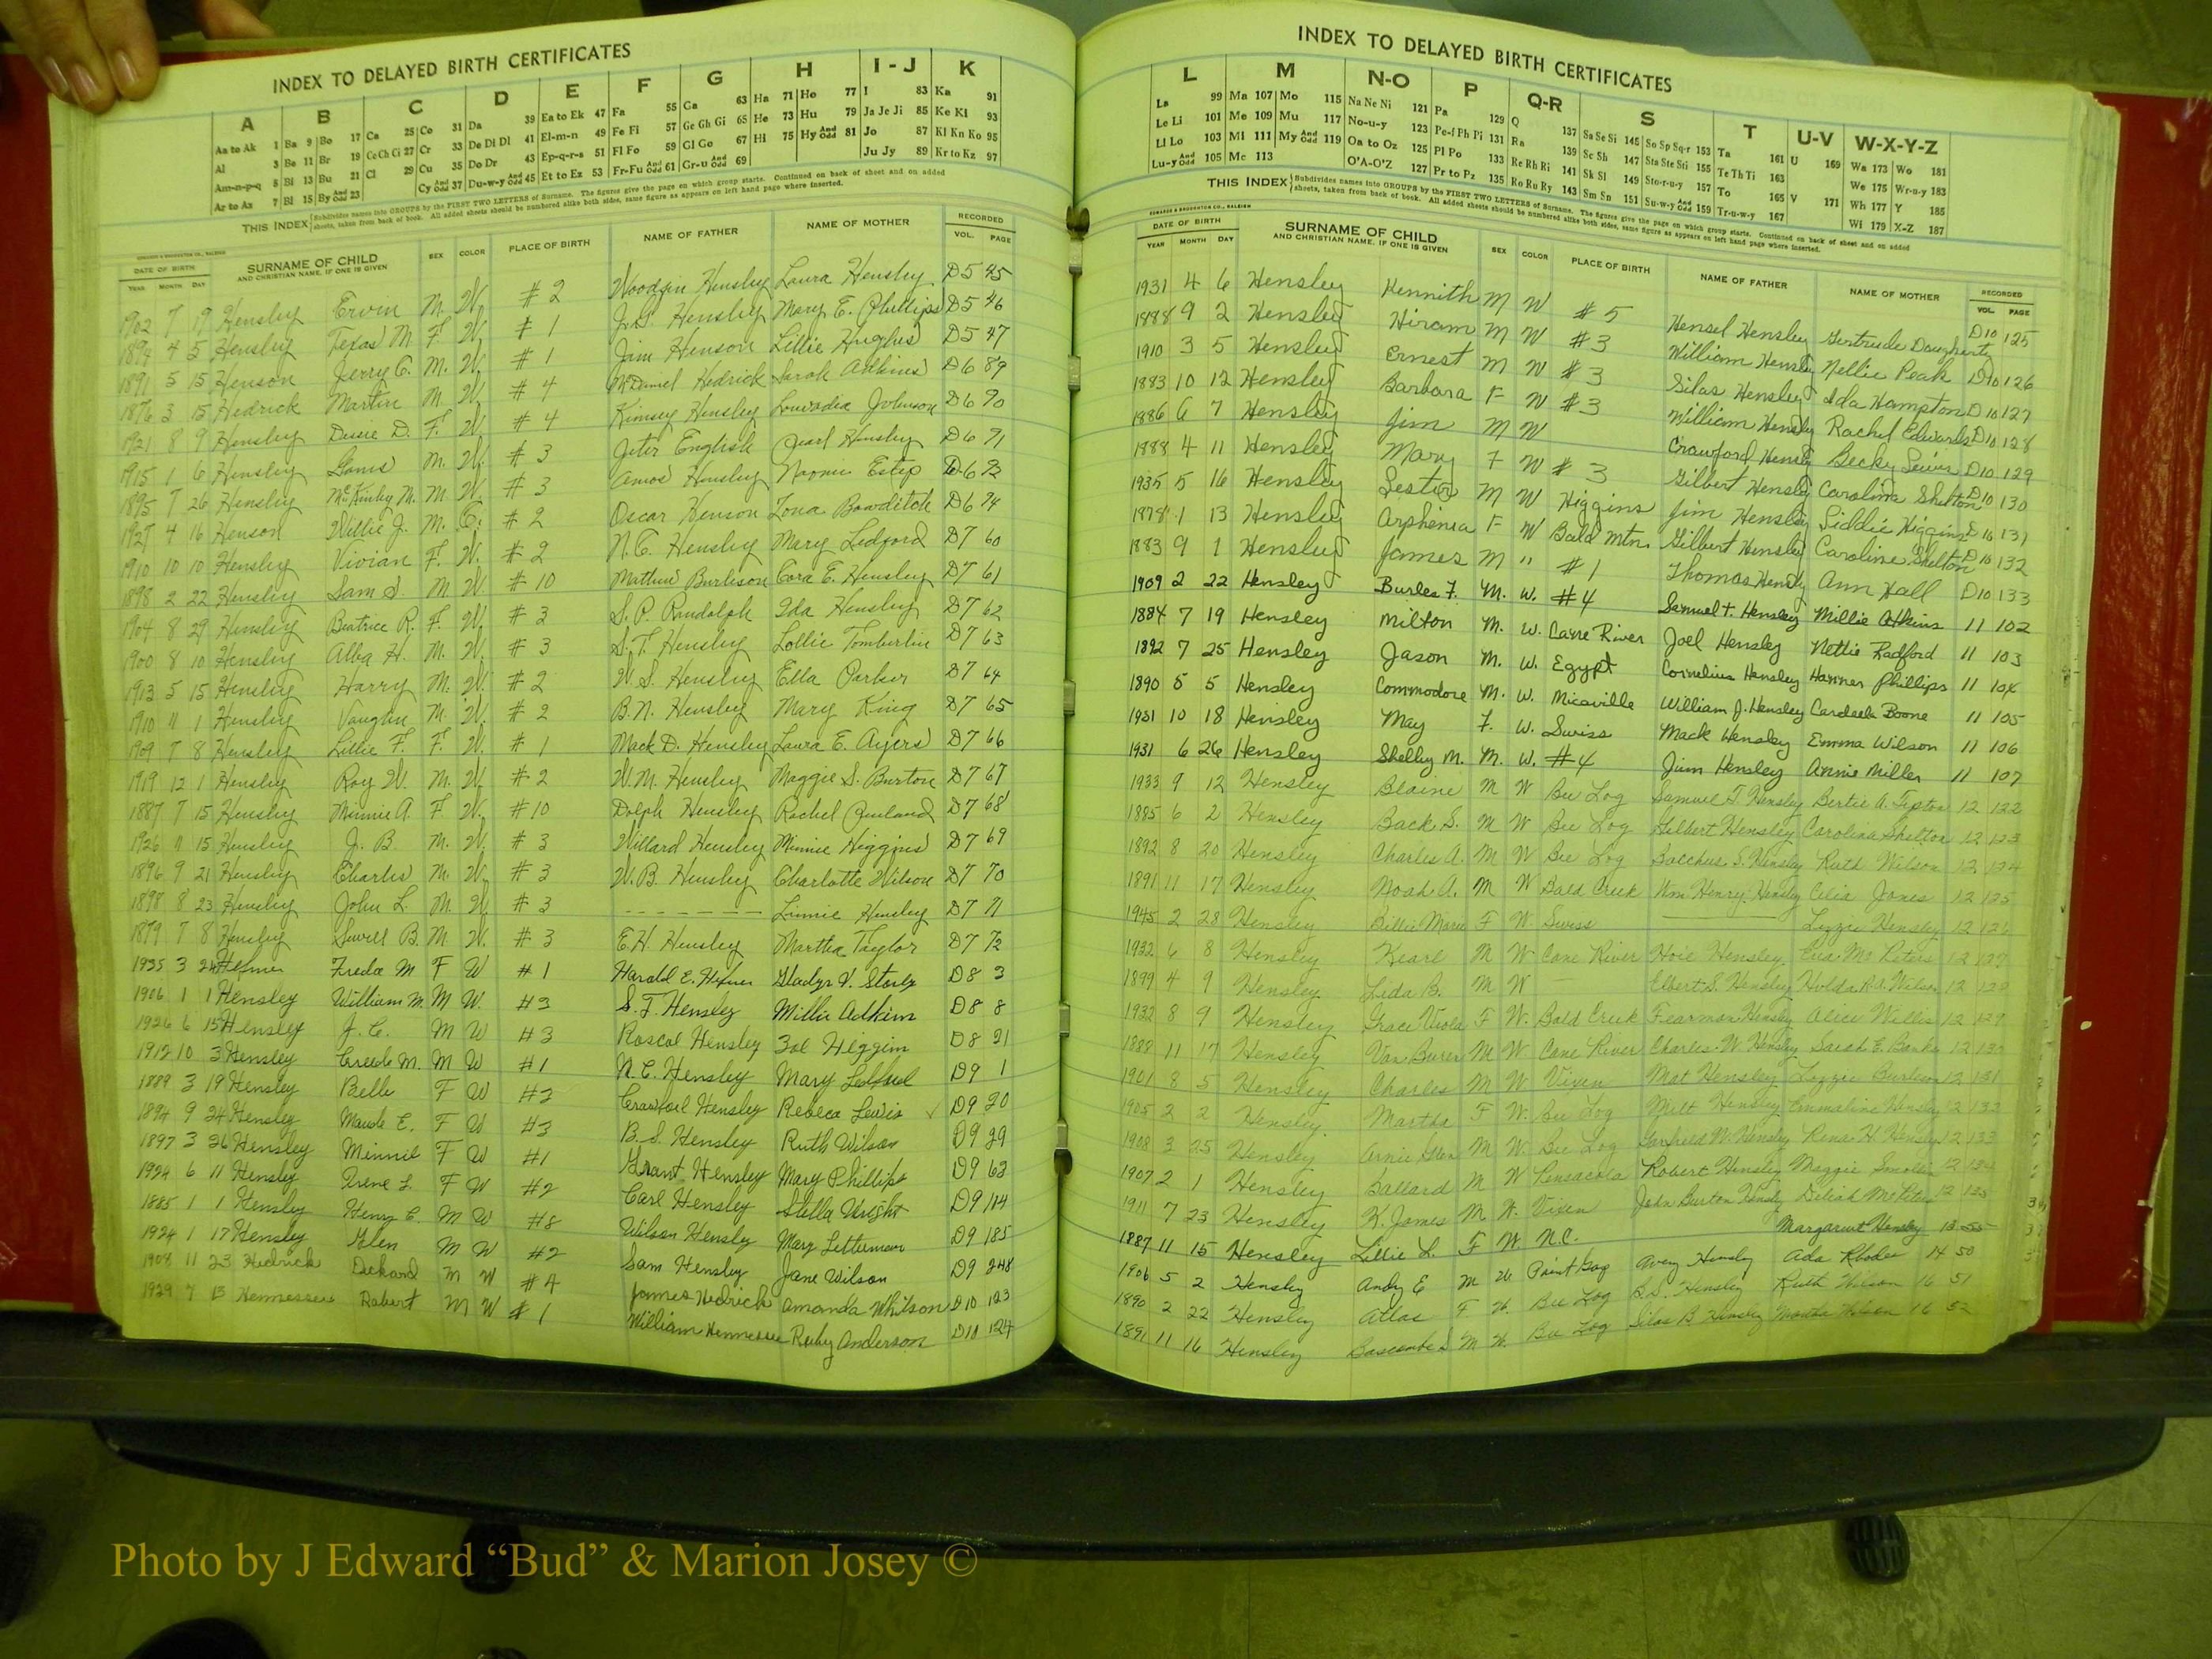 INDEX TO DELAYED BIRTH CERTIFICATES
A B C D E F G H I-J K
Aa to Ak 1 Ba 9 Bo 17 Ca 25 Co 31 Da 39 Ea to Ek 47 Fa 55 Ga 63 Ha 71 Ho 77 I 83 Ka 91
Al 3 Be 11 Br 19 Ce Ch Ci 27 Cr 33 De Di Dl 41 El-m-n 49 Fe Fi 57 Ge Gh Gi 65 He 73 Hu 79 Ja Je Ji 85 Ke Kl 93
Am-n-p-q 5 Bi 13 Bu 21 Cl 29 Cu 35 Do Dr 43 Ep-q-r-s 51 Fl Fo 59 Gl Go 67 Hi 75 Hy And Odd 81 Jo 87 Kl Kn Ko 95
Ar to Az 7 Bl 15 By And Odd 23 Cy And Odd 37 Du-w-y And Odd 45 Et to Ez 53 Fr-Fu And Odd 61 Gr-u And Odd 69 Ju Jy 89 Kr to Kz 97
THIS INDEX Subdivides names into GROUPS by the FIRST TWO LETTERS of Surname. The figures give the page on which group starts. Continued on back of sheet and on added
sheets, taken from back of book. All added sheets should be numbered alike both sides, same figure as appears on left hand page where inserted.
DATE OF BIRTH SURNAME OF CHILD SEX COLOR PLACE OF BIRTH NAME OF FATHER NAME OF MOTHER RECORDED
YEAR MONTH DAY AND CHRISTIAN NAME, IF ONE IS GIVEN VOL. PAGE
7 19 Hensley Ervin M. W. #2 Woodfin Hensley Laura Hensley D5 45
1894 4 5 Hensley Texas M. F. W. #1 Hensley Mary E. Phillips D5 46
1891 5 15 Henson Jerry C. M. W. #1 Jim Henson Lillie Hughes D5 47
1876 3 15 Hedrick Martin M. W. #4 McDaniel Hedrick Sarah Adkins D6 89
1921 8 9 Hensley Dessie D. F. W. #4 Kimsey Hensley Louvadia Johnson D6 90
1915 1 6 Hensley M. W. #3 Jeter English Pearl Hensley D6 91
1895 7 26 Hensley McKinley M. M. W. #3 Amos Hensley Naomi Estep D6 93
1927 4 16 Henson Willie J. M. C. #2 Oscar Henson Zona Bowditch D6 94
1910 10 10 Hensley Vivian F. W. #2 N.C. Hensley Mary Ledford D7 60
1898 2 22 Hensley Sam S. M. W. #10 Mathew Burleson Cora E. Hensley D7 61
1904 8 29 Hensley Beatrice R. F. W. #3 S. P. Randolph Ida Hensley D7 62
1900 8 10 Hensley Alba H. M. W. #3 S. T. Hensley Lollie Tomberlin D7 63
1913 5 15 Hensley Harry M. W. #2 W. S. Hensley Ella Parker D7 64
1910 11 1 Hensley Vaughn M. W. #2 B. N. Hensley Mary King D7 65
1909 7 8 Hensley Lillie F. F. W. #1 Mack D. Hensley Laura E. Ayers D7 66
1919 12 1 Hensley Roy W. M. W. #2 W. M. Hensley Maggie S. Burton D7 67
1887 7 15 Hensley Minnie A. F. W. #10 Dolph Hensley Rachel D7 68
1926 11 15 Hensley J. B. M. W. #3 Willard Hensley Minnie Higgins D7 69
1896 9 21 Hensley Charles M. W. #3 W. B. Hensley Charlotte Wilson D7 70
1898 8 23 Hensley John L. M. W. #3 - - - - - - - Linnie Hensley D7 71
1879 7 8 Hensley Sewell B. M. W. #3 E.H. Hensley Martha Taylor D7 72
1935 3 24 Hefner Freda M F W #1 Harold E. Hefner Gladys V. D8 3
1906 1 1 Hensley William M. M W. #3 S. T. Hensley Millie Adkins D8 8
1926 6 15 Hensley J. C. M W #3 Roscoe Hensley Higgins D8 21
1912 10 3 Hensley Creede M. M W #1 N. C. Hensley Mary Ledford D9 1
1889 3 19 Hensley Belle F W #3 Crawford Hensley Rebeca Lewis D9 20
1894 9 24 Hensley Maude E. F W #3 B. S. Hensley Ruth Wilson D9 29
1897 3 26 Hensley Minnie F W #1 Grant Hensley Mary Phillips D9 63
1924 6 11 Hensley Irene L. F W #2 Carl Hensley Stella Wright D9 114
1885 1 1 Hensley Henry C. M W #8 Wilson Hensley Mary Letterman D9 185
1924 1 17 Hensley Glen M W #2 Sam Hensley Jane Wilson D9 248
1908 11 23 Hedrick Dickard M W #4 James Hedrick Amanda Whitson D10 123
1929 7 15 Hennessee Robert M W #1 William Hennessee Ruby Anderson D10 124
INDEX TO DELAYED BIRTH CERTIFICATES
L M N-O P Q-R S T U-V W-X-Y-Z
La 99 Ma 107 Mo 115 Na Ne Ni 121 Pa 129 Q 137 Sa Se Si 145 So Sp Sq-r 153 Ta 161 U 169 Wa 173 Wo 181
Le Li 101 Me 109 Mu 117 No-u-y 123 Pe-f Ph Pi 131 Ra 139 Sc Sh 147 Sta Ste Sti 155 Te Th Ti 163 We 175 Wr-u-y 183
Ll Lo 103 Mi 111 My And Odd 119 Oa to Oz 125 Pl Po 133 Re Rh Ri 141 Sk Sl 149 Sto-r-u-y 157 To 165 V 171 Wh 177 Y 185
Lu-y And Odd 105 Mc 113 O'A-O'Z 127 Pr to Pz 135 Ro Ru Ry 143 Sm Sn 151 Su-w-y And Odd 159 Tr-u-w-y 167 Wi 179 X-Z 187
THIS INDEX Subdivides names into GROUPS by the FIRST TWO LETTERS of Surname. The figures give the page on which group starts. Continued on back of sheet and on added
sheets, taken from back of book. All added sheets should be numbered alike both sides, same figure as appears on left hand page where inserted.
DATE OF BIRTH SURNAME OF CHILD SEX COLOR PLACE OF BIRTH NAME OF FATHER NAME OF MOTHER RECORDED
YEAR MONTH DAY AND CHRISTIAN NAME, IF ONE IS GIVEN VOL. PAGE
1931 4 6 Hensley Kennith M W #5 Hensel Hensley Gertrude Daugharty D10 125
1888 9 2 Hensley Hiram M W #3 William Hensley Nellie Peak D10 126
1910 3 5 Hensley Ernest M W #3 Silas Hensley Ida Hampton D10 127
1883 10 12 Hensley Barbara F W #3 William Hensley Rachel Edwards D10 128
1886 6 7 Hensley Jim M W Crawford Hensley Becky Lewis D10 129
1888 4 11 Hensley Mary F W #3 Gilbert Hensley Caroline Shelton D10 130
1935 5 16 Hensley Lester M W Higgins Jim Hensley Siddie Higgins D10 131
1878 1 13 Hensley Orphenia F W Bald Mtn. Gilbert Hensley Caroline Shelton D10 132
1883 9 1 Hensley James M " #1 Thomas Hensley Ann Hall D10 133
1909 2 22 Hensley Burles F. M. W. #4 Samuel T. Hensley Millie Atkins 11 102
1884 7 19 Hensley Milton M. W. Cane River Joel Hensley Nettie Radford 11 103
1892 7 25 Hensley Jason M. W. Egypt Cornelius Hensley Hanner Phillips 11 104
1890 5 5 Hensley Commodore M. W. Micaville William J. Hensley Boone 11 105
1931 10 18 Hensley May F. W. Swiss Mack Hensley Emma Wilson 11 106
1931 6 26 Hensley Shelby M. M. W. #4 Jim Hensley Annie Miller 11 107
1933 9 12 Hensley Blaine M W Bee Log Samuel T. Hensley Bertie A. Tipton 12 122
1885 6 2 Hensley Back S. M W Bee Log Gilbert Hensley Carolina Shelton 12 123
1892 8 20 Hensley Charles A. M W Bee Log Bacchus S. Hensley Ruth Wilson 12 124
1891 11 17 Hensley Noah A. M W Bald Creek Wm Henry Hensley Celia Jones 12 125
1945 2 28 Hensley Billie Marie F W. Swiss Lizzie Hensley 12 126
1932 6 8 Hensley Kearl M W Cane River Hoie Hensley Eva McPeters 12 127
1899 4 9 Hensley Lida B. M W Elbert S. Hensley Hulda Wilson 12 128
1932 8 9 Hensley Grace Viola F W. Bald Creek Fearman Hensley Alice Willis 12 129
1888 11 17 Hensley Van Buren M W Cane River Charles W Hensley Sarah E. Banks 12 130
1901 8 5 Hensley Charles M W Vixen Mat Hensley Lizzie Burleson 12 131
1905 2 2 Hensley Martha F W. Bee Log Milt Hensley Emmaline Hensley 12 132
1908 3 25 Hensley Arnie Glen M W. Bee Log Garfield W. Hensley Rena H Hensley 12 133
1907 2 1 Hensley Ballard M W Pensacola Robert Hensley Maggie 12 134
1911 7 23 Hensley K. James M W. Vixen John Burton Hensley Deliah McPeters 12 135
1887 11 15 Hensley Lillie L. F W. N.C. Margaret Hensley 13 55
1906 5 2 Hensley Andy E M W Paint Gap Avery Hensley Ada 14 50
1890 2 22 Hensley Atlas F W. Bee Log B.S. Hensley Ruth Wilson 16 51
1891 11 16 Hensley Bascombe S M W. Bee Log Silas B Hensley Martha Wilson 16 52
Photo by J Edward “Bud” & Marion Josey ©